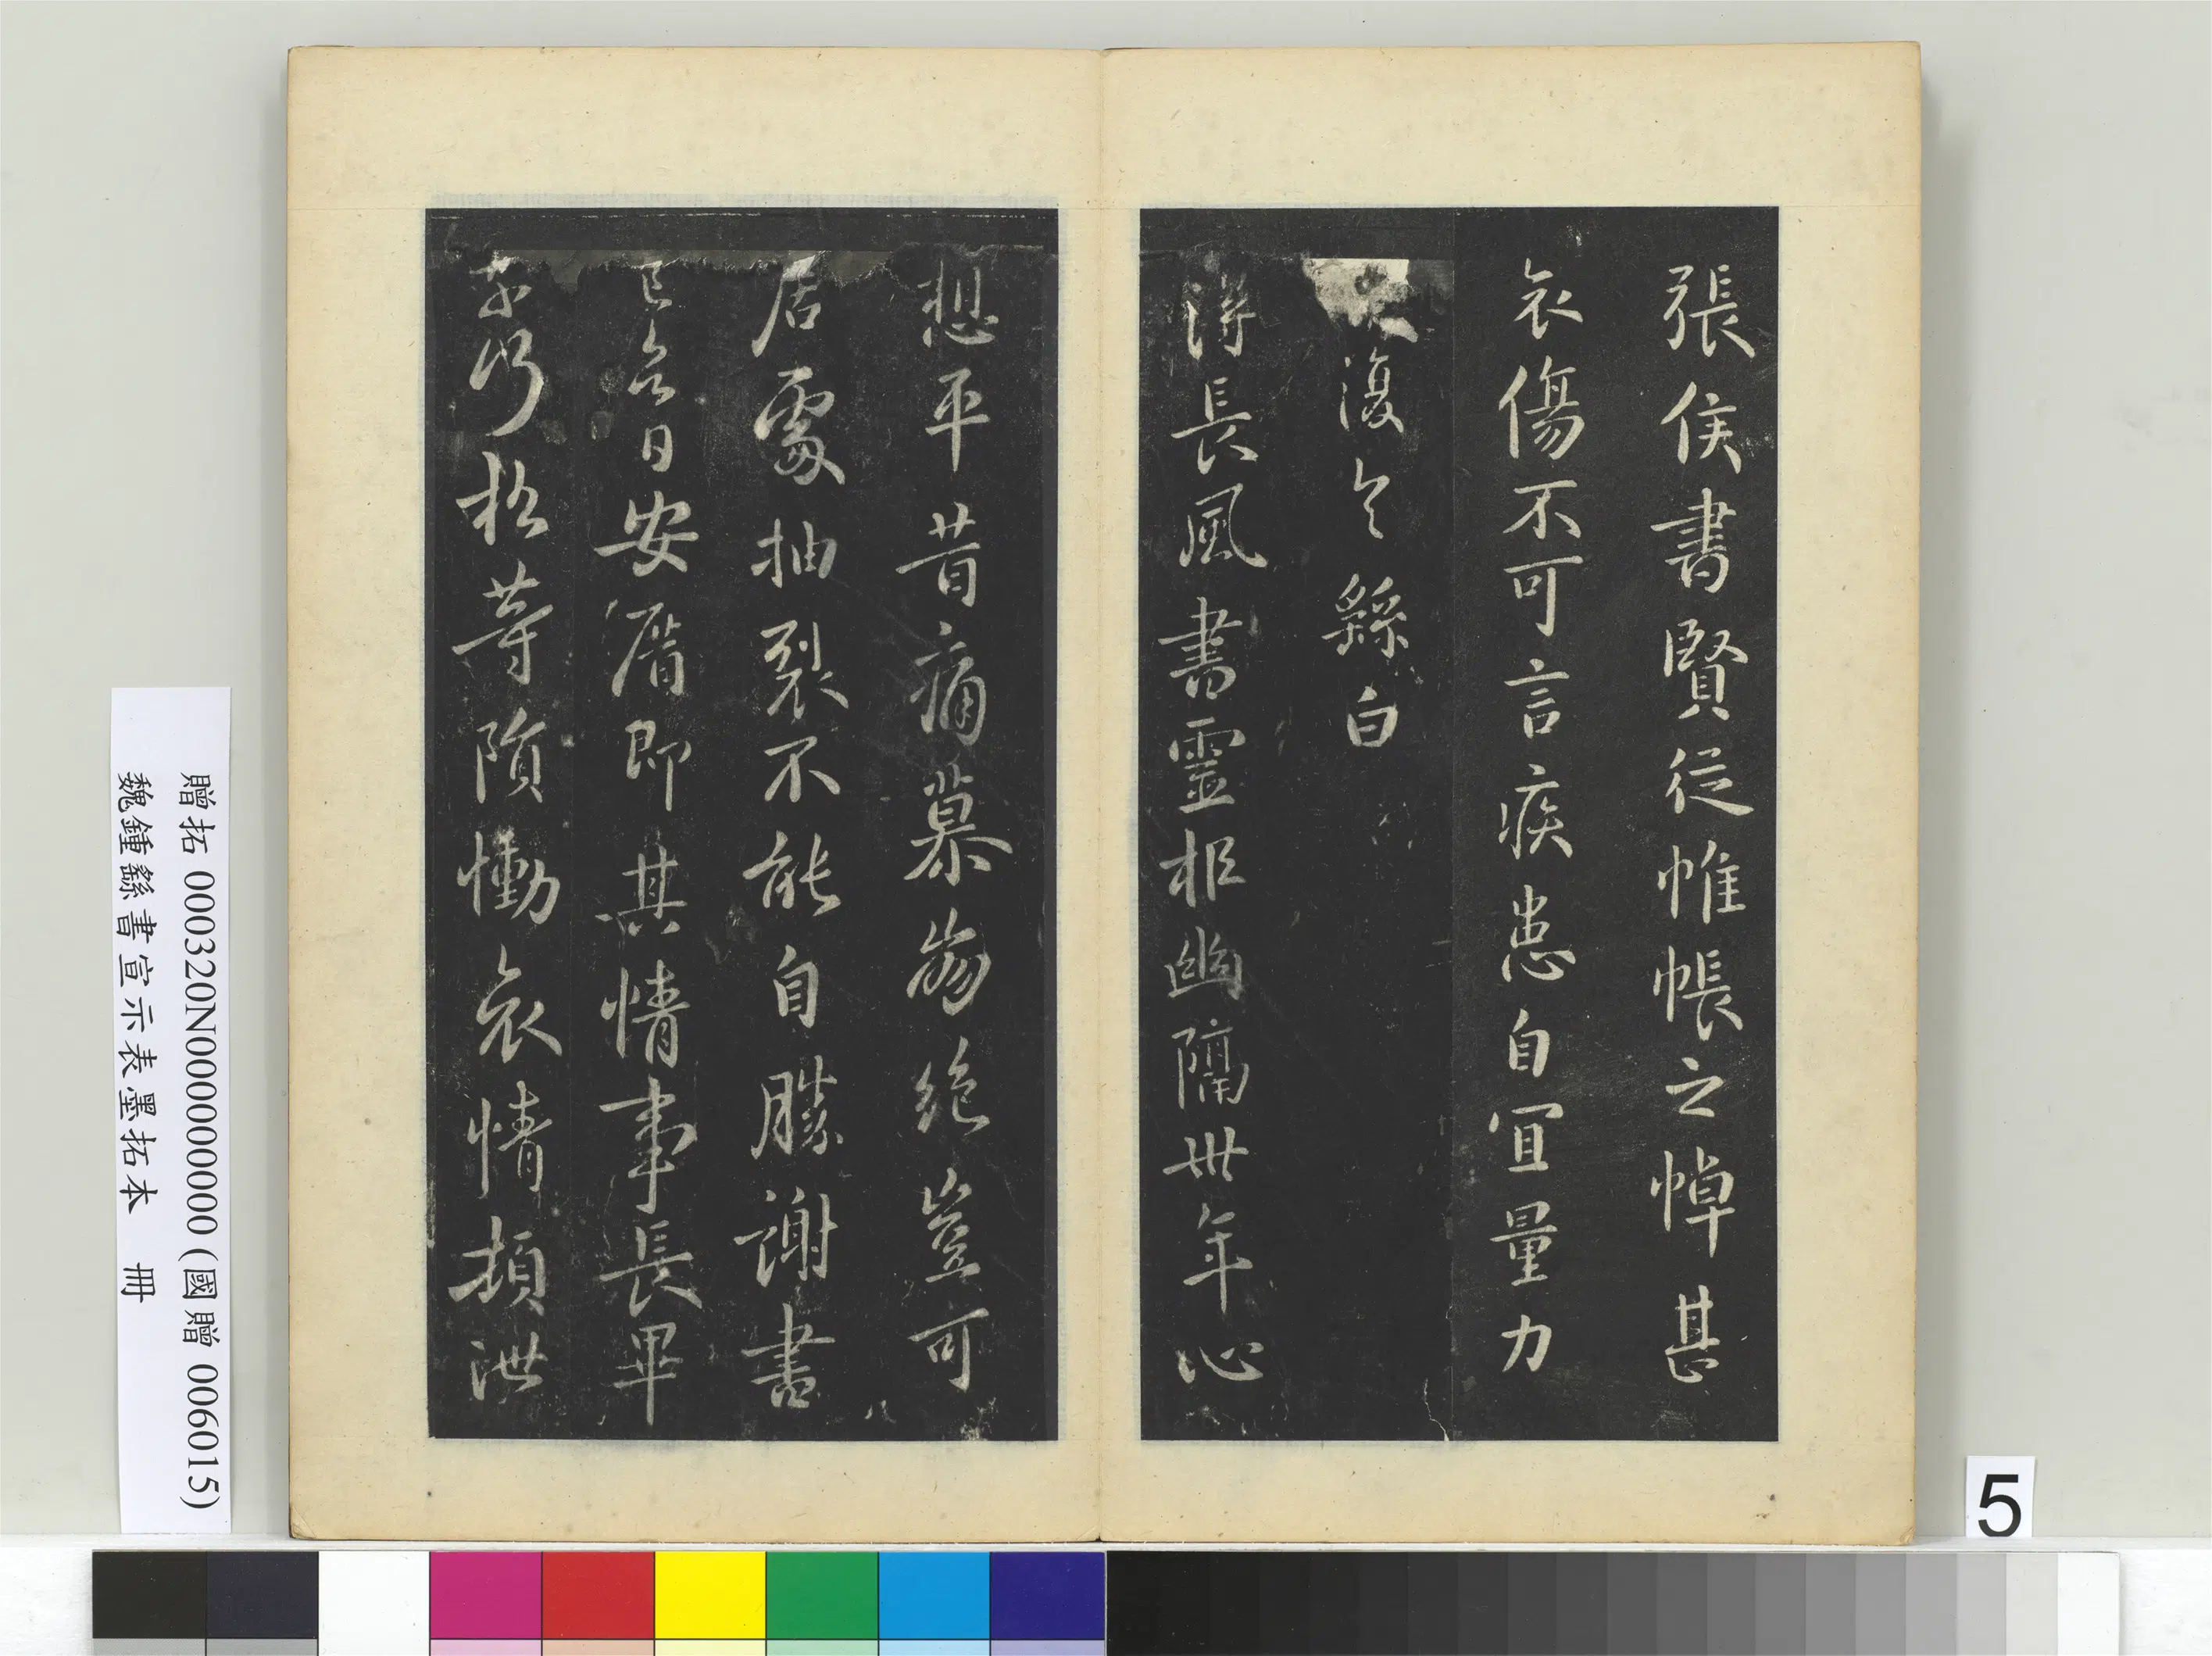 張侯書賢從帷帳之悼甚
哀傷不可言疾患自宜量力
復々 繇白
得長風書靈柩幽隔卅年心
想平昔痛慕崩絶豈可
居處抽裂不能自勝謝書
已令日安厝即其情事長畢
松等隕慟哀情頓泄
贈拓 000320N000000000 (國贈 006015)
魏鍾繇書宣示表墨拓本 冊
5